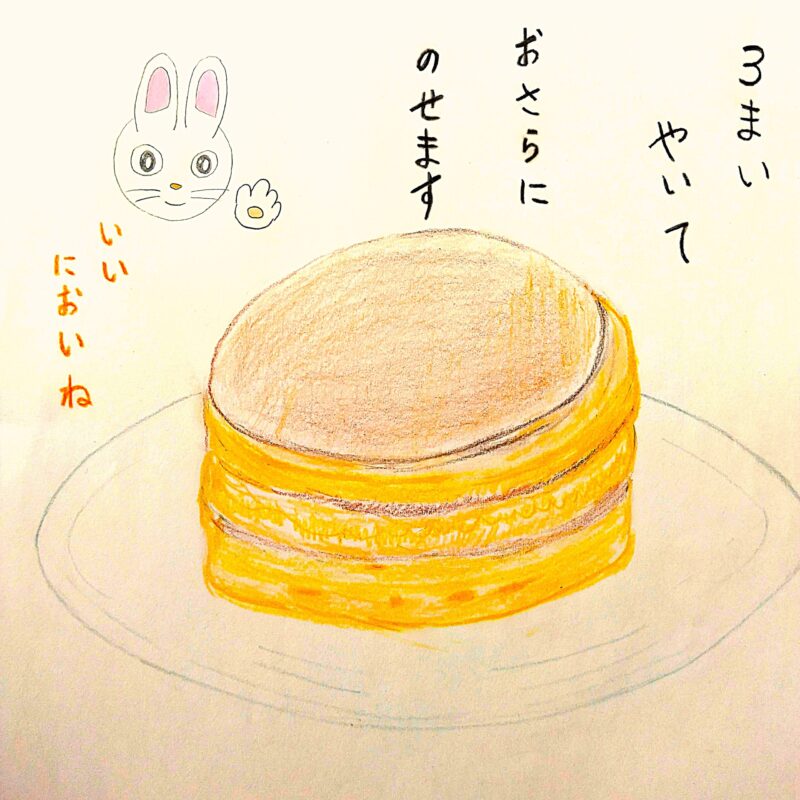 3まい
やいて
おさらに
のせます
いい
においね